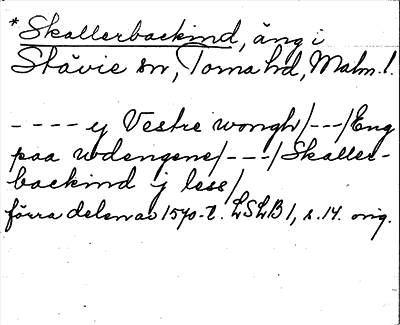 *Skallerbackind, äng i
Stävie sn, Torna hd, Malm. l.
- - - - y Vestre wongh/---/Eng
paa wdengene/---/Skaller-
backind j less/
förra delen av 1570-t. LSLB 1, s. 14. orig.